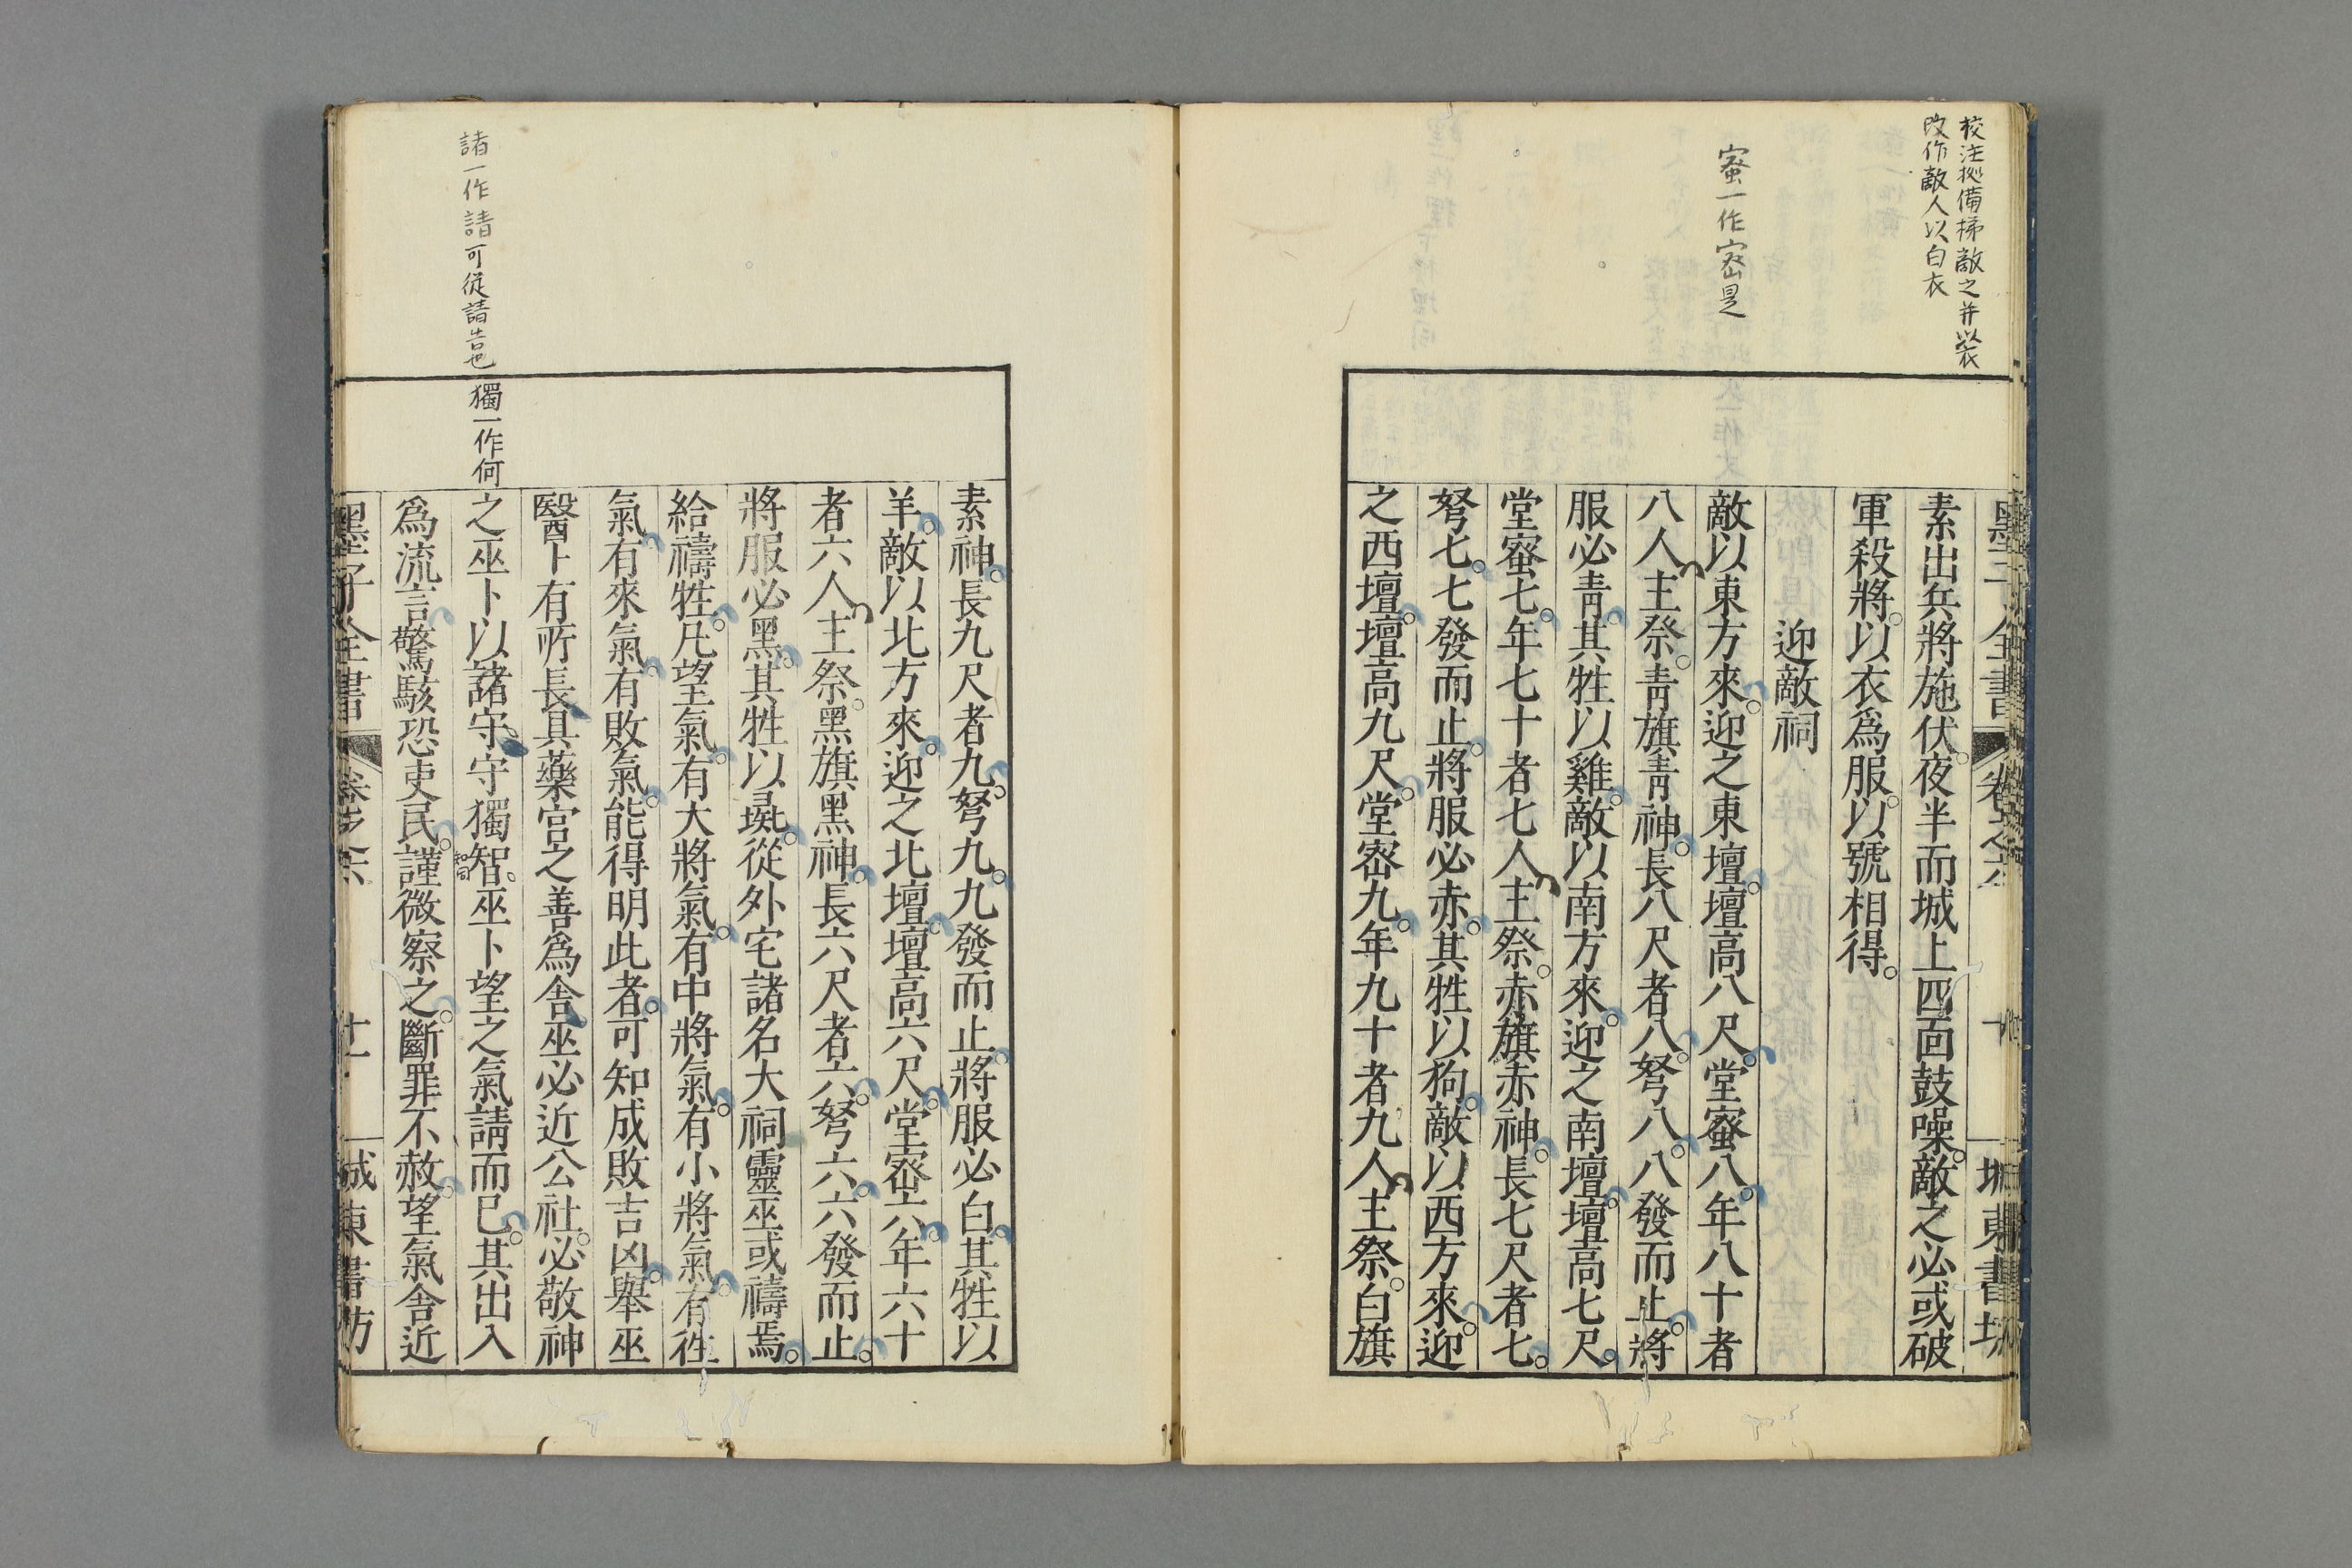 校注拠備梯敵之并以裝
改作敵人以白衣
蜜一作密是
素出兵將施伏夜半而城上四面鼓噪敵之必或破
軍殺將以衣爲服以號相得
迎敵祠
敵以東方來迎之東壇壇高八尺堂蜜八年八十者
八人主祭靑旗靑神長八尺者八弩八八發而止將
服必靑其牲以雞敵以南方來迎之南壇壇高七尺
堂蜜七年七十者七人主祭赤旗赤神長七尺者七
弩七七發而止將服必赤其牲以狗敵以西方來迎
之西壇壇高九尺堂密九年九十者九人主祭白旗
素神長九尺者九弩九九發而止將服必白其牲以
羊敵以北方來迎之北壇壇高六尺堂密六年六十
者六人主祭黑旗黑神長六尺者六弩六六發而止
將服必黑其牲以彘從外宅諸名大祠靈巫或禱焉
給禱牲凡望氣有大將氣有中將氣有小將氣有徃
氣有來氣有敗氣能得明此者可知成敗吉凶舉巫
醫卜有所長具藥宮之善爲舍巫必近公社必敬神
之巫卜以諸守守獨智巫卜望之氣請而已其出入
爲流言驚駭恐吏民謹微察之斷罪不赦望氣舍近
諸一作請可従請告也
獨一作何
墨子全書
卷之六
十一
城東書坊